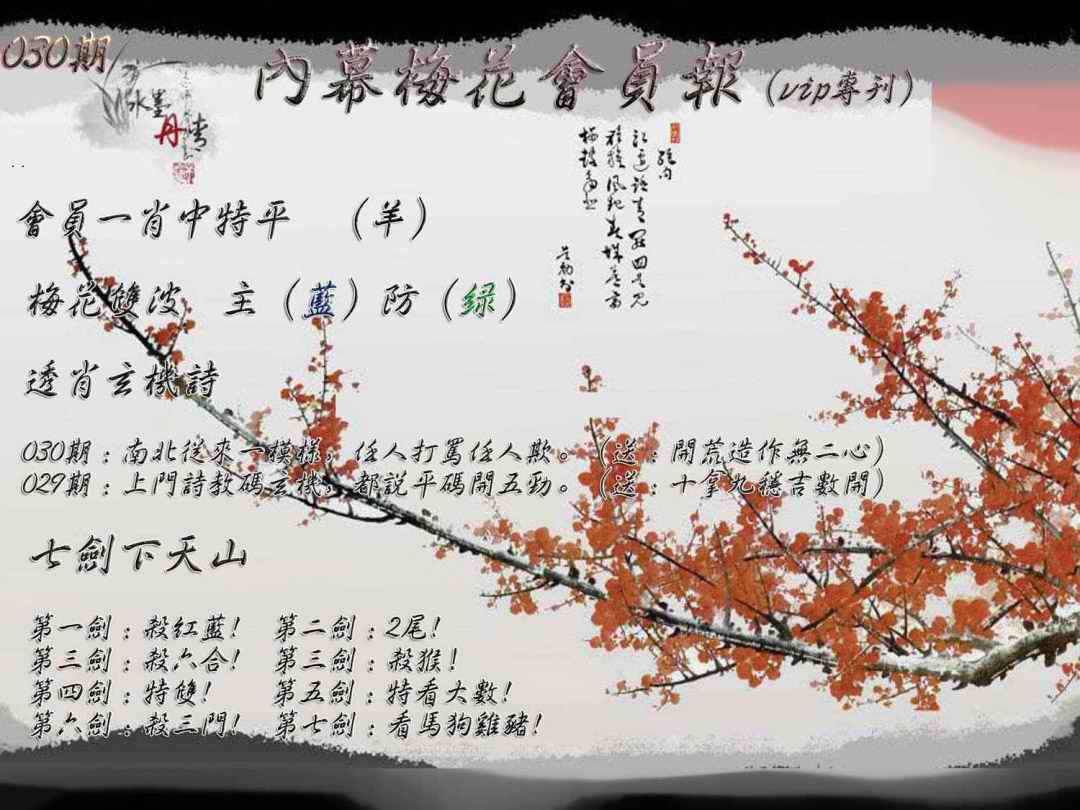 030期
內幕梅花會員報(vip專刊)
水墨
丹青
..
會員一肖中特平 (羊)
梅花雙波 主(藍)防(绿)
透肖玄機詩
030期:南北從來一模樣,任人打罵任人欺。(送:開荒造作無二心)
029期:上門詩教碼玄機,都說平碼開五勁。(送:十拿九穩吉數開)
七劍下天山
第一劍:殺紅藍! 第二劍:2尾!
第三劍:殺六合! 第三劍:殺猴!
第四劍:特雙! 第五劍:特看大數!
第六劍:殺三門! 第七劍:看馬狗雞豬!